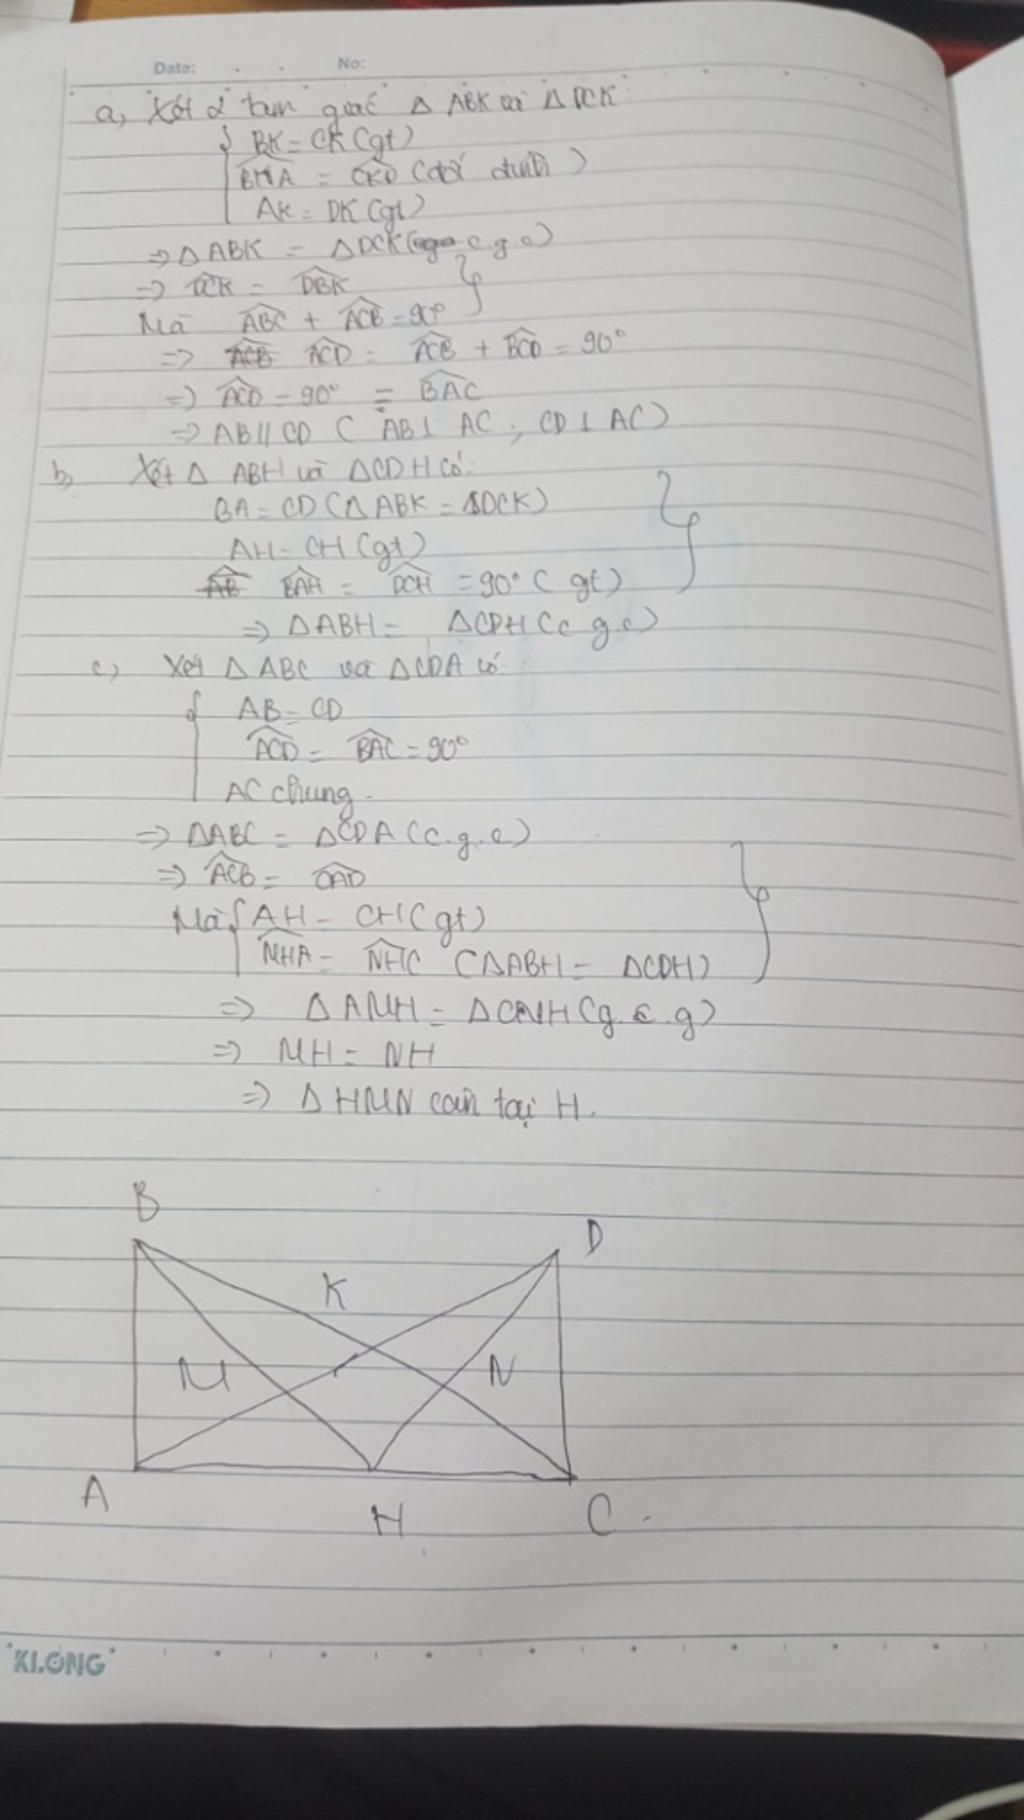 Date: No:
a, Xét 2 tam giác Δ ABK và Δ DCK
BK = CK (gt)
BKA = CKD (đối đỉnh)
AK = DK (gt)
=> Δ ABK = Δ DCK ( c g c)
=> DCK = DBK
Mà ABC + ACB = 90°
=> ACD = ACB + BCD = 90°
=> ACD = 90° = BAC
=> AB // CD ( AB ⊥ AC ; CD ⊥ AC)
b, Xét Δ ABH và ΔCDH có:
BA = CD (Δ ABK = ΔDCK)
AH = CH (gt)
BAH = DCH = 90° ( gt)
=> Δ ABH = ΔCDH (c g.c)
c) Xét Δ ABC và ΔCDA có
AB = CD
ACD = BAC = 90°
AC chung.
=> ΔABC = ΔCDA (c.g.c)
=> ACB = CAD
Mà AH = CH (gt)
NHA = NHC (ΔABH = ΔCDH)
=> ΔAMH = ΔCNH (g.c.g)
=> MH = NH
=> Δ HMN cân tại H.
B
D
K
M N
A
H C
KLONG